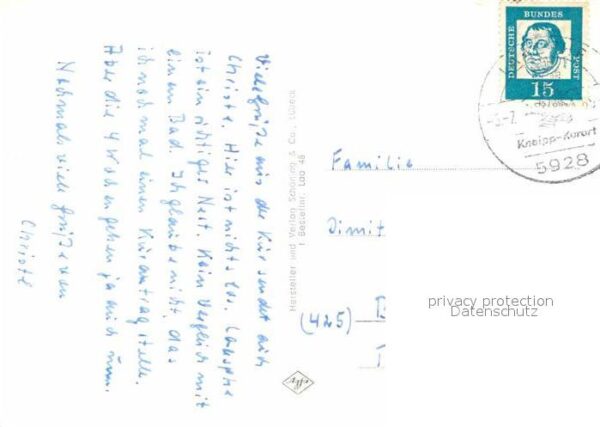 Viele Grüße aus der Kur sendet euch
Christe. Hier ist nichts los. Laasphe
ist ein richtiges Nest. Kein Vergleich mit
einem Bad. Ich glaube nicht, das
ich noch mal einen Kurantrag stelle.
Aber die 4 Wochen gehen ja auch rum.
Nochmals viele Grüße von
Christe
Hersteller und Verlag Schöning & Co., Lübeck
Bestellnr. Laa 48
DEUTSCHE BUNDESPOST
15
Kneipp-Kurort
5928
Familie
Dimit
(425)
privacy protection
Datenschutz